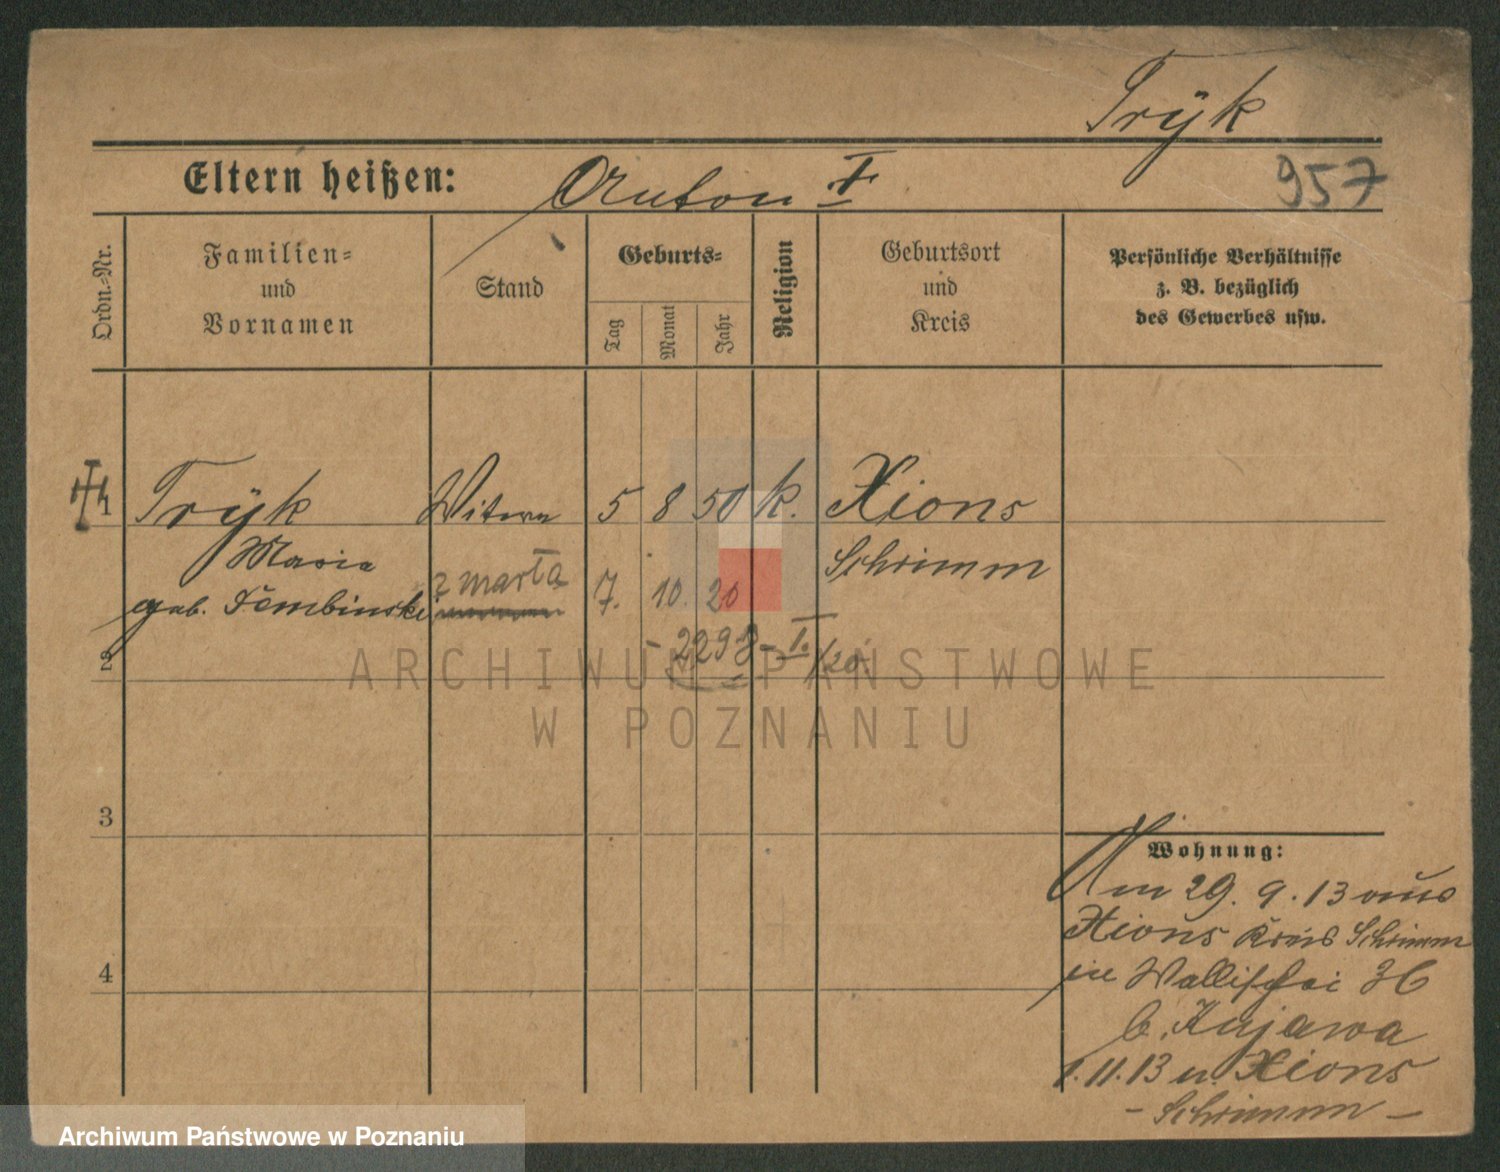 Trÿk
Eltern heißen: Anton I
957
Ordn.-Nr.
Familien-
und
Vornamen
Stand
Geburts-
Tag
Monat
Jahr
Religion
Geburtsort
und
Kreis
Persönliche Verhältnisse
z. B. bezüglich
des Gewerbes usw.
1 Trÿk Witwe 5 8 50 k. Xions
Maria zmarła 7. 10. 20 Schrimm
geb. Dembinski
- 2298 - I. /20.
2
3
4
Wohnung:
Am 29. 9. 13 aus
Xions Kreis Schrimm
in Wallischei 36
b. Kujawa
1. 11. 13 n. Xions
- Schrimm -
ARCHIWUM PAŃSTWOWE
W POZNANIU
Archiwum Państwowe w Poznaniu